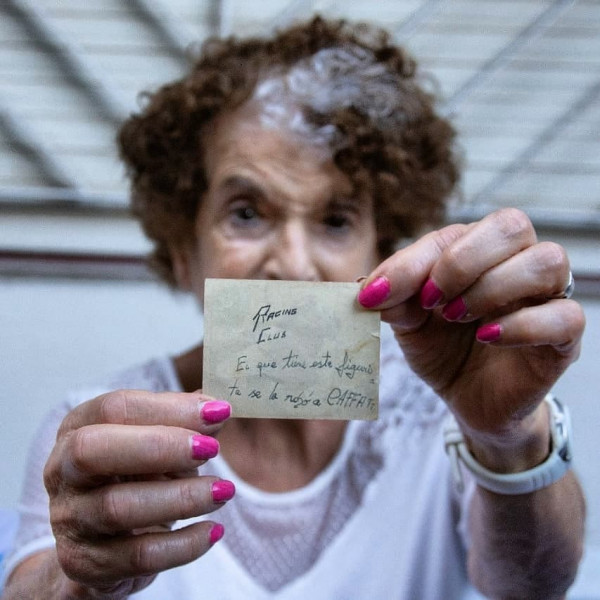 RACING
CLUB
El que tiene este figuri
ta se la robó a CAFFAT